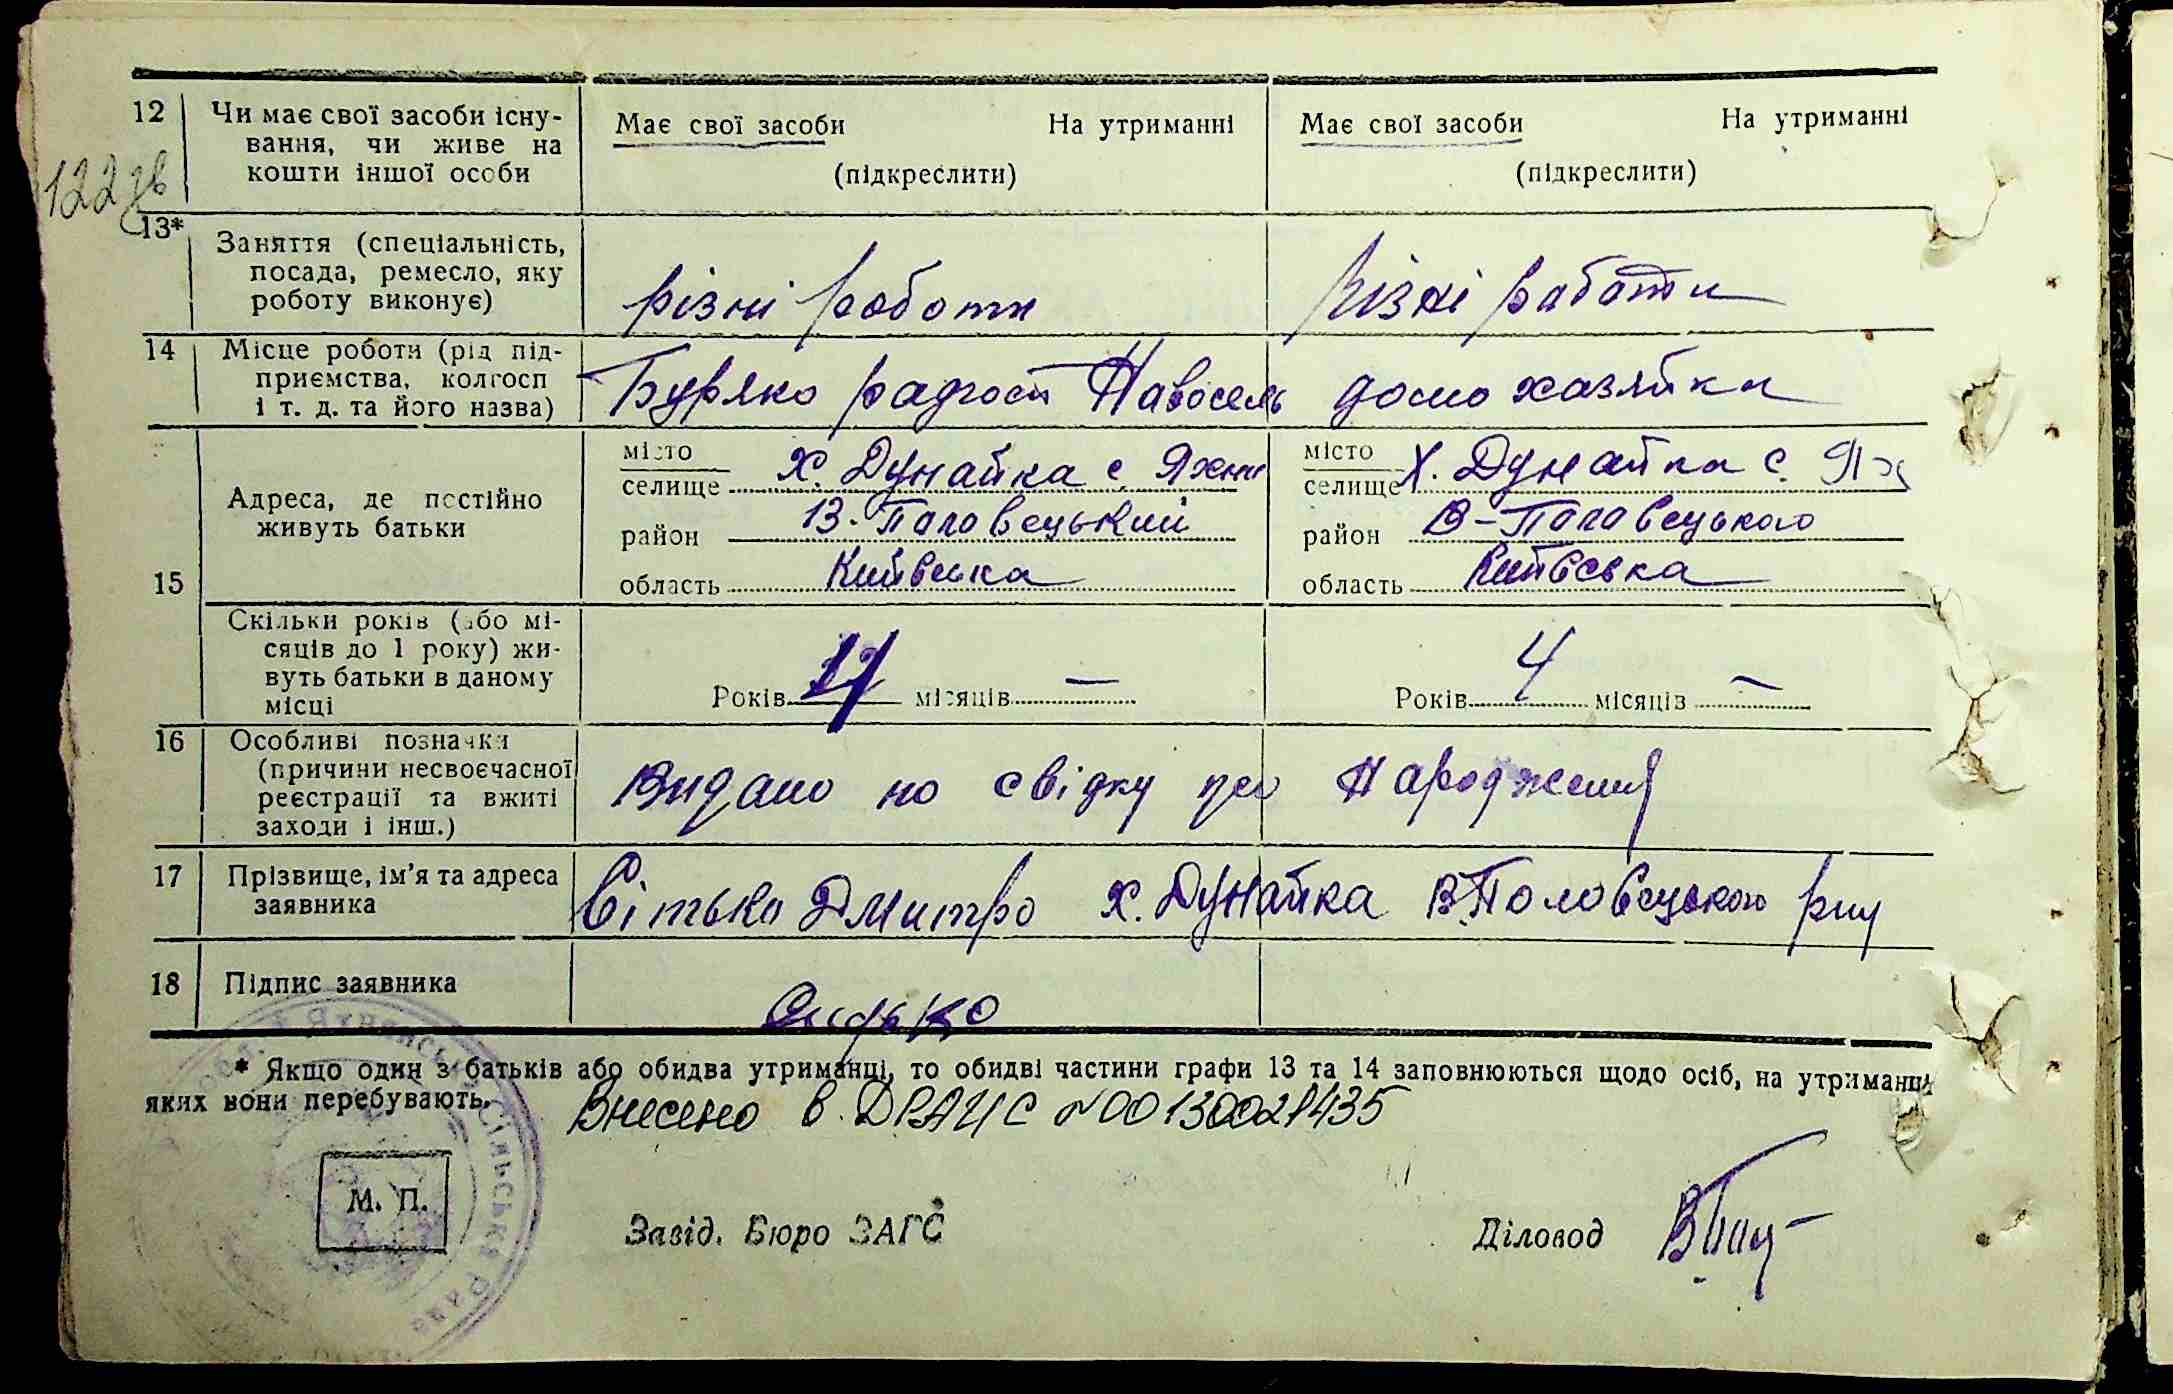 12 Чи має свої засоби існу-
вання, чи живе на
кошти іншої особи
Має свої засоби На утриманні
(підкреслити)
Має свої засоби На утриманні
(підкреслити)
122 зв
13* Заняття (спеціальність,
посада, ремесло, яку
роботу виконує)
різні роботи
Різні работи
14 Місце роботи (рід під-
приємства, колгосп
і т. д. та його назва)
Буряко радгосп Навосель
домо хазяйка
15 Адреса, де постійно
живуть батьки
місто
селище х. Дунайка с. Яхни
район В-Паловецький
область Київська
місто
селище Х. Дунайка с. Ях
район В-Паловецького
область Київська
Скільки років (або мі-
сяців до 1 року) жи-
вуть батьки в даному
місці
Років місяців —
Років 4 місяців —
16 Особливі позначки
(причини несвоєчасної
реєстрації та вжиті
заходи і інш.)
Видано но свідку про Народження
17 Прізвище, ім'я та адреса
заявника
Сітько Дмитро х. Дунайка В.Половецького рну
18 Підпис заявника
* Якщо один з батьків або обидва утриманці, то обидві частини графи 13 та 14 заповнюються щодо осіб, на утриманні
яких вони перебувають.
Внесено в ДРАЦС №00130021435
М. П.
Завід. Бюро ЗАГС
Діловод
Сільська Рада